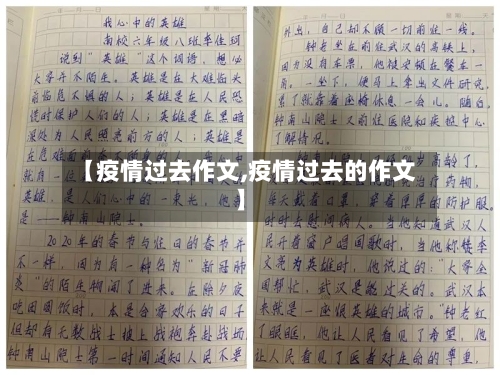 我心中的英雄
南校六年级八班李佳颖
说到“英雄”这个词语，想必
大家并不陌生。英雄是在大难临头
前临危不惧的人；英雄是在人民恐
慌时保护人们的人；英雄是在黑暗
深处为人民照亮前方的人；英雄是
在危难面前
就是一位
英雄，是人们心中的一束光，他就
是——钟南山院士。
2020年的春节与往日的春节并
不一样，因为有一种名为“新冠肺
炎”的陌生物闯了进来。在除夕夜
吃团圆饭时，本是合家欢乐的日子
但却有无数战士披上战袍奔赴战场
钟南山院士第一时间通知人民不要
外出，自己却不顾一切前往一线。
钟老坐在前往武汉的高铁上，
因为没有车票，他被安顿在餐车一
角。一坐下，便马上拿出文件研究，
累了就靠着座椅休息一会儿。随后，
钟南山院士又前往医院和疾控中心
了解情况。
岁高龄了，
治疗药物，
每天戴着口罩，穿着厚厚的防护服，
时时去慰问病人。当他知道武汉人
民开着窗户唱国歌时，当他称赞李
文亮为英雄时，他说过的：“大家全
国帮忙，武汉是能过关的。武汉本
来就是一座很英雄的城市。”钟老红
了眼眶，他让人民看见了希望，他
让人民看见了医者对生命的尊重，
【疫情过去作文,疫情过去的作文
】